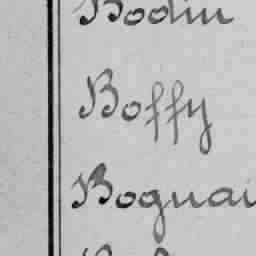 Bodin
Boffy
Boguai